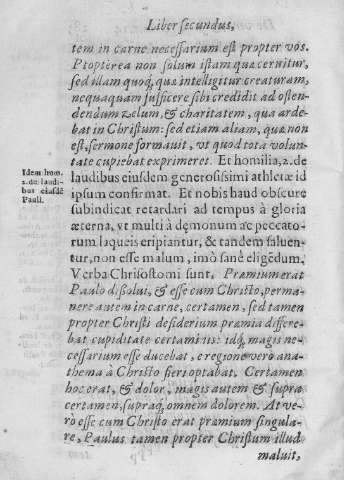 Liber secundus,
tem in carne necessarium est propter vos.
Ptopterea non solum istam quæ cernitur,
sed illam quoq; quæ intelligitur creaturam,
nequaquam sufficere sibi credidit ad osten-
dendum zelum, & charitatem, qua arde-
bat in Christum: sed etiam aliam, quæ non
est, sermone formauit, vt quod tota volun-
tate cupiebat exprimeret. Et homilia, 2. de
Idem hom.
2. de laudi-
bus eiusdē
Pauli.
laudibus eiusdem generosissimi athletæ id
ipsum confirmat. Et nobis haud obscure
subindicat retardari ad tempus à gloria
æterna, vt multi à demonum ac peccato-
rum laqueis eripiantur, & tandem saluen-
tur, non esse malum, imò sanè eligēdum,
Verba Chrisostomi sunt. Præmium erat
Paulo dissolui, & esse cum Christo, perma-
nere autem in carne, certamen, sed tamen
propter Christi desiderium præmia differe-
bat cupiditate certaminis: idq; magis ne-
cessarium esse ducebat, e regione verò ana-
thema à Christo fieri optabat. Certamen
hoc erat, & dolor, magis autem & supra
certamen, supraq; omnem dolorem. At ve-
rò esse cum Christo erat præmium singula-
re, Paulus tamen propter Christum illud
maluit,